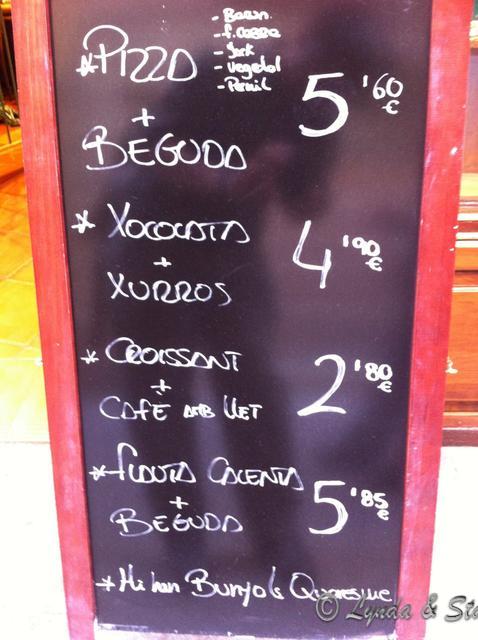 - Bacon.
- f. Cabra
- York
- Vegetal
- Pernil
* PIZZA
5'60 €
+
BEGUDA
* XOCOLATA
+
XURROS
4'90 €
* CROISSANT
+
CAFÈ AMB LLET
2'80 €
* FLAUTA CALENTA
+
BEGUDA
5'85 €
* Hi han Bunyols Quaresma
© Lynda & Sta